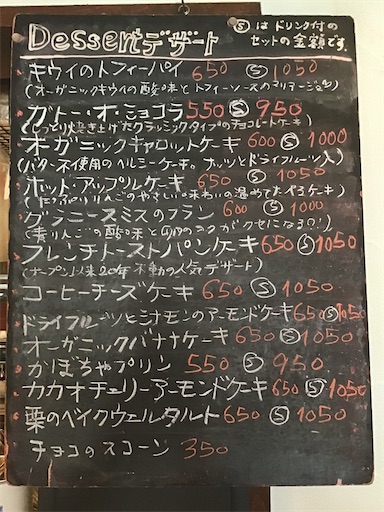 Dessert デザート
Ⓢはドリンク付の
セットの金額です。
キウイのトフィーパイ 650 Ⓢ 1050
(オーガニックキウイの酸味とトフィーソースのマリアージュ)
ガトー・オ・ショコラ 550 Ⓢ 950
(しっとり焼き上げたクラシックタイプのチョコレートケーキ)
オーガニックキャロットケーキ 600 Ⓢ 1000
(バター不使用のヘルシーケーキ。ナッツとドライフルーツ入)
ホットアップルケーキ 650 Ⓢ 1050
りんごのやさしい味わいの温めてたべるケーキ)
グラニースミスのフラン 600 Ⓢ 1000
(青りんごの酸味と卵のコクがクセになる?!)
フレンチトーストパンケーキ 650 Ⓢ 1050
(オープン以来20年不動の人気デザート)
コーヒーチーズケーキ 650 Ⓢ 1050
ドライフルーツとシナモンのアーモンドケーキ 650 Ⓢ 1050
オーガニックバナナケーキ 650 Ⓢ 1050
かぼちゃプリン 550 Ⓢ 950
カカオチェリーアーモンドケーキ 650 Ⓢ 1050
栗のベイクウェルタルト 650 Ⓢ 1050
チョコのスコーン 350